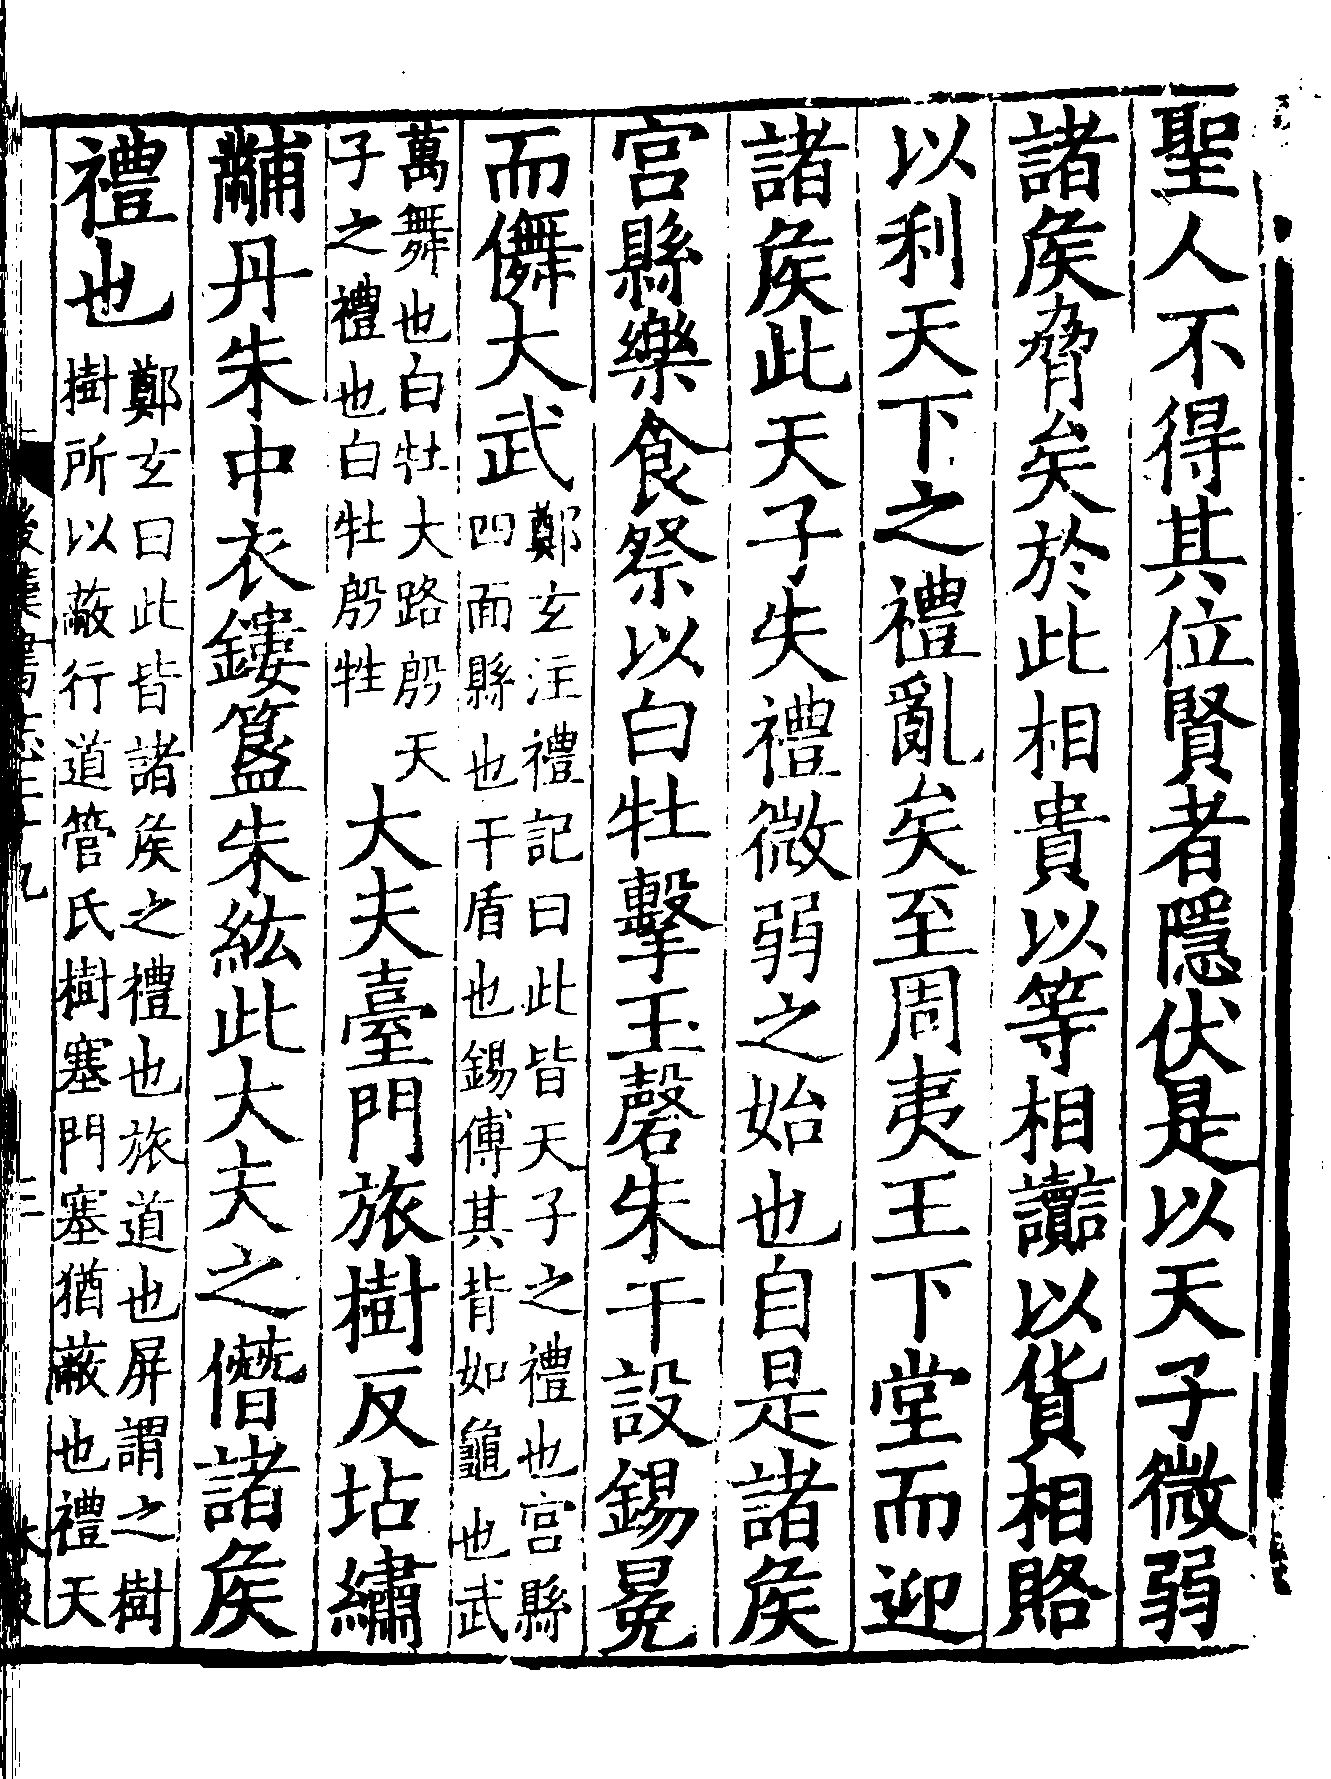 聖人不得其位賢者隱伏是以天子微弱
諸侯脅矣於此相貴以等相讟以貨相賂
以利天下之禮亂矣至周夷王下堂而迎
諸侯此天子失禮微弱之始也自是諸侯
宮縣樂食祭以白牡擊玉磬朱干設錫冕
而儛大武
鄭玄注禮記曰此皆天子之禮也宮縣
四面縣也干盾也錫傅其背如龜也武
萬舞也白牡大路殷天
子之禮也白牡殷牲
大夫臺門旅樹反坫繡
黼丹朱中衣鏤簋朱紘此大夫之僭諸侯
禮也
鄭玄曰此皆諸侯之禮也旅道也屏謂之樹
樹所以蔽行道管氏樹塞門塞猶蔽也禮天
後漢書志二十九
三